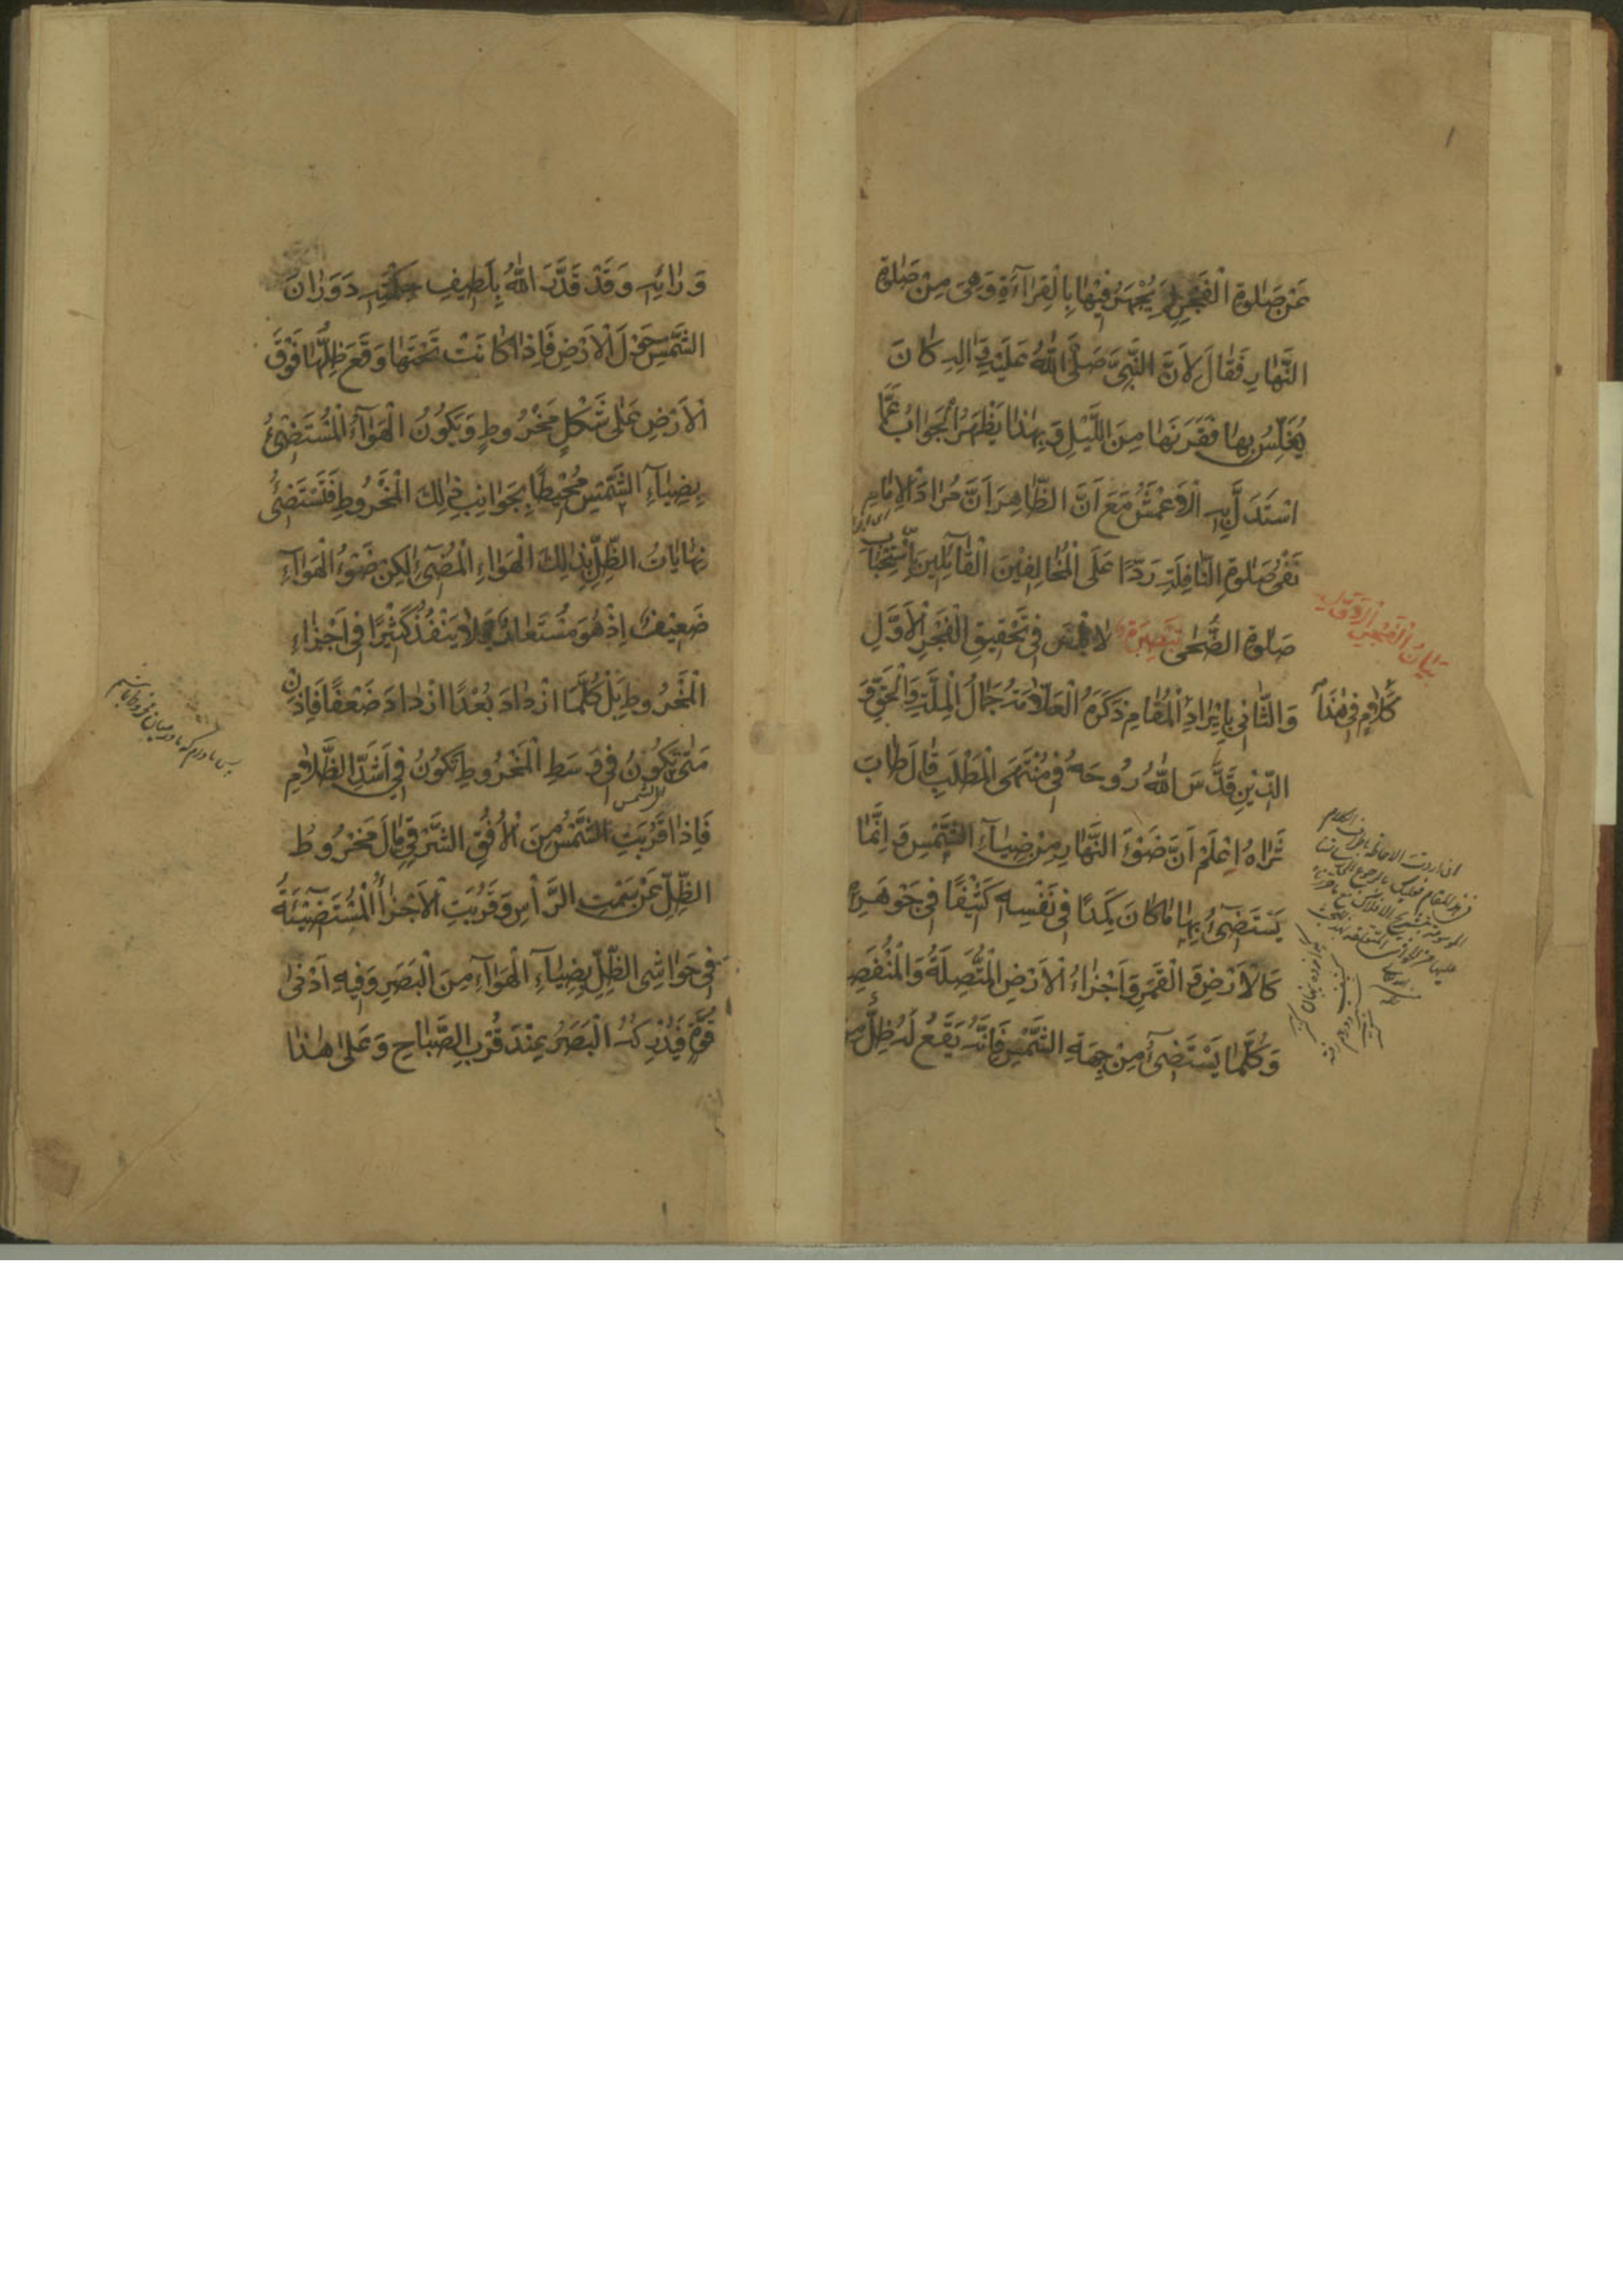 عَنْ صَلوةِ الْفَجْرِ لِمَ يُجْهَرُ فِيْهَا بِالْقِرَاءَةِ وَهِىَ مِنْ صَلوةِ
النَّهَارِ فَقَالَ لِاَنَّ النَّبِىَّ صَلَّى اللهُ عَلَيْهِ وَالِهِ كَانَ
يُغَلِّسُ بِهَا فَقَرَنَهَا مِنَ اللَّيْلِ وَبِهٰذَا يَظْهَرُ الْجَوَابُ عَمَّا
اسْتَدَلَّ بِهِ الْاَعْمَشُ مَعَ اَنَّ الظَّاهِرَ اَنَّ مُرَادَ الْاِمَامِ
نَفْىُ صَلوةِ النَّافِلَةِ رَدًّا عَلَى الْمُخَالِفِيْنَ الْقَائِلِيْنَ بِاسْتِحْبَابِ
صَلوةِ الضُّحٰى تَبْصِرَةٌ لا فِى تَحْقِيقِ الْفَجْرِ الْاَوَّلِ
بَيَانُ الْفَجْرِ الْاَوَّلِ
وَالثَّانِى بِاِيْرَادِ الْمُقَامِ ذَكَرَهُ الْعَلَّامَةُ جَمَالُ الْمِلَّةِ وَالْحَقِّ وَ
كَلَامٍ فِى هٰذَا
الدِّيْنِ قَدَّسَ اللهُ رُوحَهُ فِى مُنْتَهَى الْمَطْلَبِ قَالَ طَابَ
ثَرَاهُ اِعْلَمْ اَنَّ ضَوْءَ النَّهَارِ مِنْ ضِيَاءِ الشَّمْسِ وَاِنَّمَا
يَسْتَضِىءُ بِهَا مَا كَانَ كَمِدًا فِى نَفْسِهِ كَثِيْفًا فِى جَوْهَرِهِ
كَالْاَرْضِ وَالْقَمَرِ وَاَجْزَاءُ الْاَرْضِ الْمُتَّصِلَةُ وَالْمُنْفَصِلَة
وَكُلَّمَا يَسْتَضِىءُ مِنْ جِهَةِ الشَّمْسِ فَاِنَّهُ يَقَعُ لَهُ ظِلٌّ مِنْ
وَرَائِهِ وَقَدْ قَدَّرَ اللهُ بِلَطِيفِ حِكْمَتِهِ دَوَرَانَ
الشَّمْسِ حَوْلَ الْاَرْضِ فَاِذَا كَانَتْ تَحْتَهَا وَقَعَ ظِلُّهَا فَوْقَ
الْاَرْضِ عَلٰى شَكْلِ مَخْرُوطٍ وَيَكُوْنُ الْهَوَاءُ الْمُسْتَضِىْءُ
بِضِيَاءِ الشَّمْسِ مُحِيْطًا بِجَوَانِبِ ذٰلِكَ الْمَخْرُوطِ فَتَسْتَضِىءُ
نِهَايَاتُ الظِّلِّ بِذٰلِكَ الْهَوَاءِ الْمُضِىْءِ لٰكِنْ ضَوْءُ الْهَوَاءِ
ضَعِيْفٌ اِذْ هُوَ مُسْتَعَارٌ فَلَا يَنْفُذُ كَثِيْرًا فِى اَجْزَاءِ
الْمَخْرُوطِ بَلْ كُلَّمَا ازْدَادَ بُعْدًا ازْدَادَ ضَعْفًا فَاِذَنْ
مَتٰى تَكُوْنُ فِى وَسَطِ الْمَخْرُوطِ تَكُوْنُ فِى اَشَدِّ الظَّلَامِ
فَاِذَا قَرُبَتِ الشَّمْسُ مِنَ الْاُفُقِ الشَّرْقِىِّ مَالَ مَخْرُوطُ
الظِّلِّ عَنْ سَمْتِ الرَّأْسِ وَقَرُبَتِ الْاَجْزَاءُ الْمُسْتَضِيْئَةُ
فِى حَوَاشِى الظِّلِّ بِضِيَاءِ الْهَوَاءِ مِنَ الْبَصَرِ وَفِيهِ اَدْنٰى
قُوَّةٍ فَيُدْرِكُهُ الْبَصَرُ عِنْدَ قُرْبِ الصَّبَاحِ وَعَلٰى هٰذَا